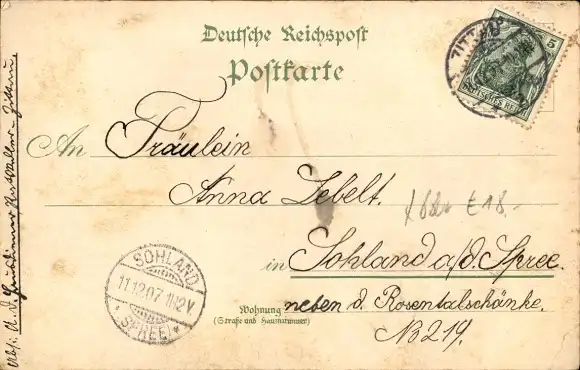 Deutsche Reichspost
Postkarte
ZITTAU
5
DEUTSCHES REICH
An Fräulein
Anna Lebelt.
in Sohland a/d. Spree.
Wohnung neben d. Rosentalschänke.
(Straße und Hausnummer)
N⁰ 219.
SOHLAND
11.12.07 11-12V.
* (SPREE) *
£18.-
Abs:
Zittau